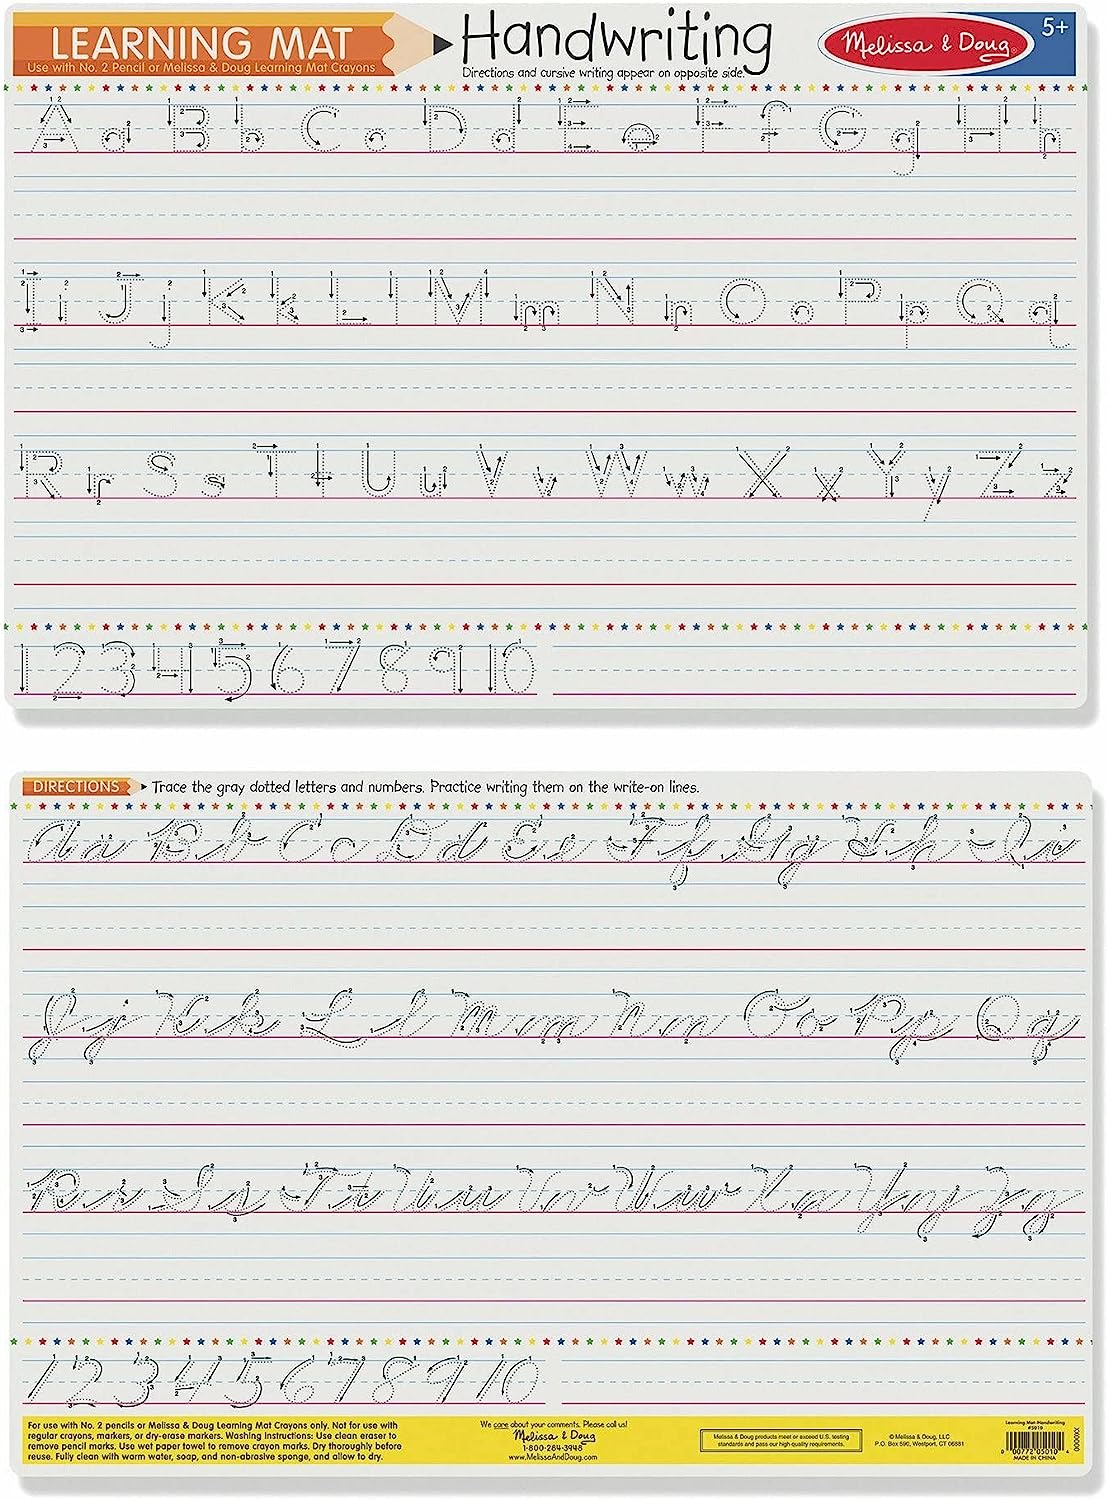 LEARNING MAT
Use with No. 2 Pencil or Melissa & Doug Learning Mat Crayons
Handwriting
Directions and cursive writing appear on opposite side.
Melissa & Doug®
5+
A a B b C c D d E e F f G g H h
I i J j K k L l M m N n O o P p Q q
R r S s T t U u V v W w X x Y y Z z
1 2 3 4 5 6 7 8 9 10
DIRECTIONS
Trace the gray dotted letters and numbers. Practice writing them on the write-on lines.
A a B b C c D d E e F f G g H h I i
J j K k L l M m N n O o P p Q q
R r S s T t U u V v W w X x Y y Z z
1 2 3 4 5 6 7 8 9 10
For use with No. 2 pencils or Melissa & Doug Learning Mat Crayons only. Not for use with
regular crayons, markers, or dry-erase markers. Washing Instructions: Use clean eraser to
remove pencil marks. Use wet paper towel to remove crayon marks. Dry thoroughly before
reuse. Fully clean with warm water, soap, and non-abrasive sponge, and allow to dry.
We care about your comments. Please call us!
Melissa & Doug
1-800-284-3948
www.MelissaAndDoug.com
Melissa & Doug products meet or exceed U.S. testing
standards and pass our high-quality requirements.
© Melissa & Doug, LLC
P.O. Box 590, Westport, CT 06881
Learning Mat-Handwriting
#5010
0 00772 05010 4
MADE IN CHINA
XX0000